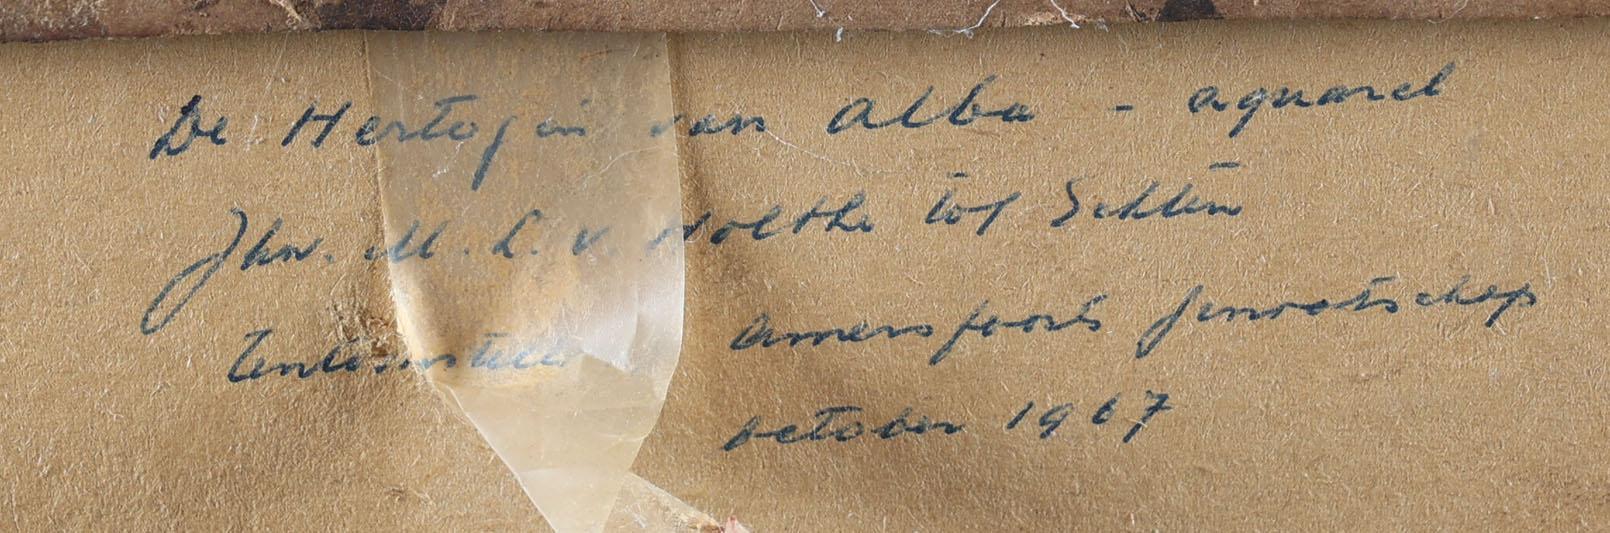 De Hertogin van Alba - aquarel
Jhr. M. L. v. Holthe tot Echten
tentoonstell. Amersfoorts genootschap
october 1967